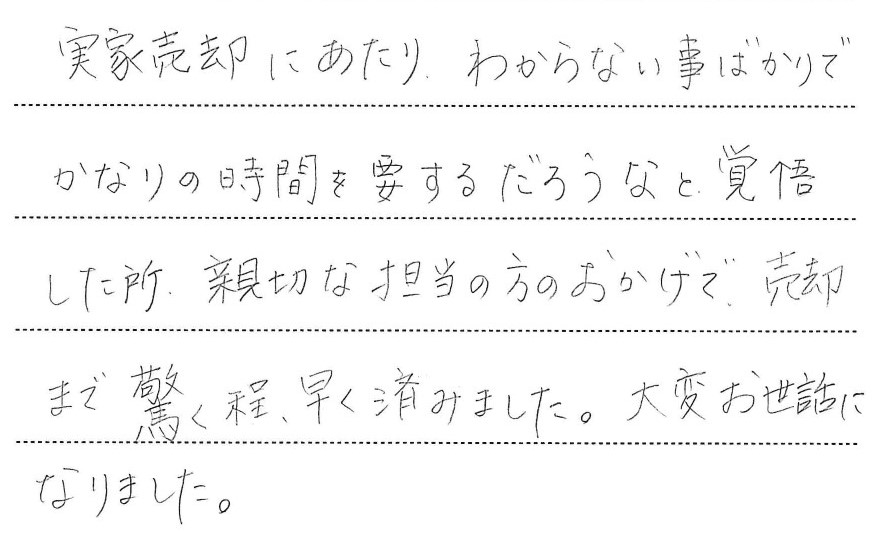 実家売却にあたり、わからない事ばかりで
かなりの時間を要するだろうなと、覚悟
した所、親切な担当の方のおかげで、売却
まで驚く程、早く済みました。大変お世話に
なりました。